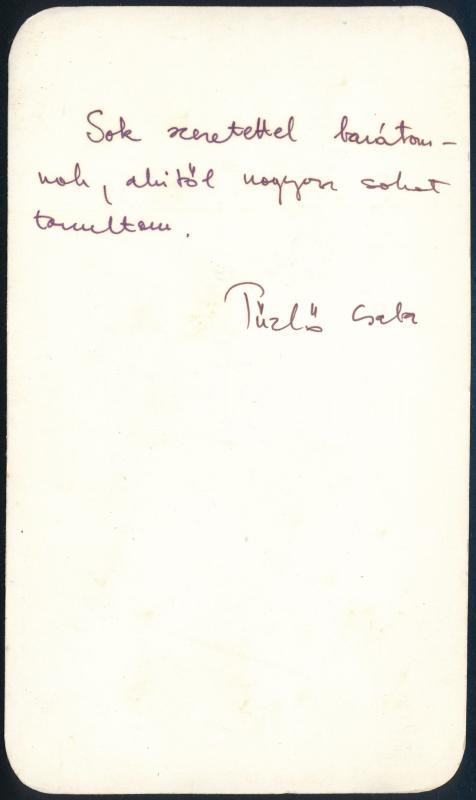 Sok szeretettel barátom-
nak, akitől nagyon sokat
tanultam.
Tűzkő Csaba